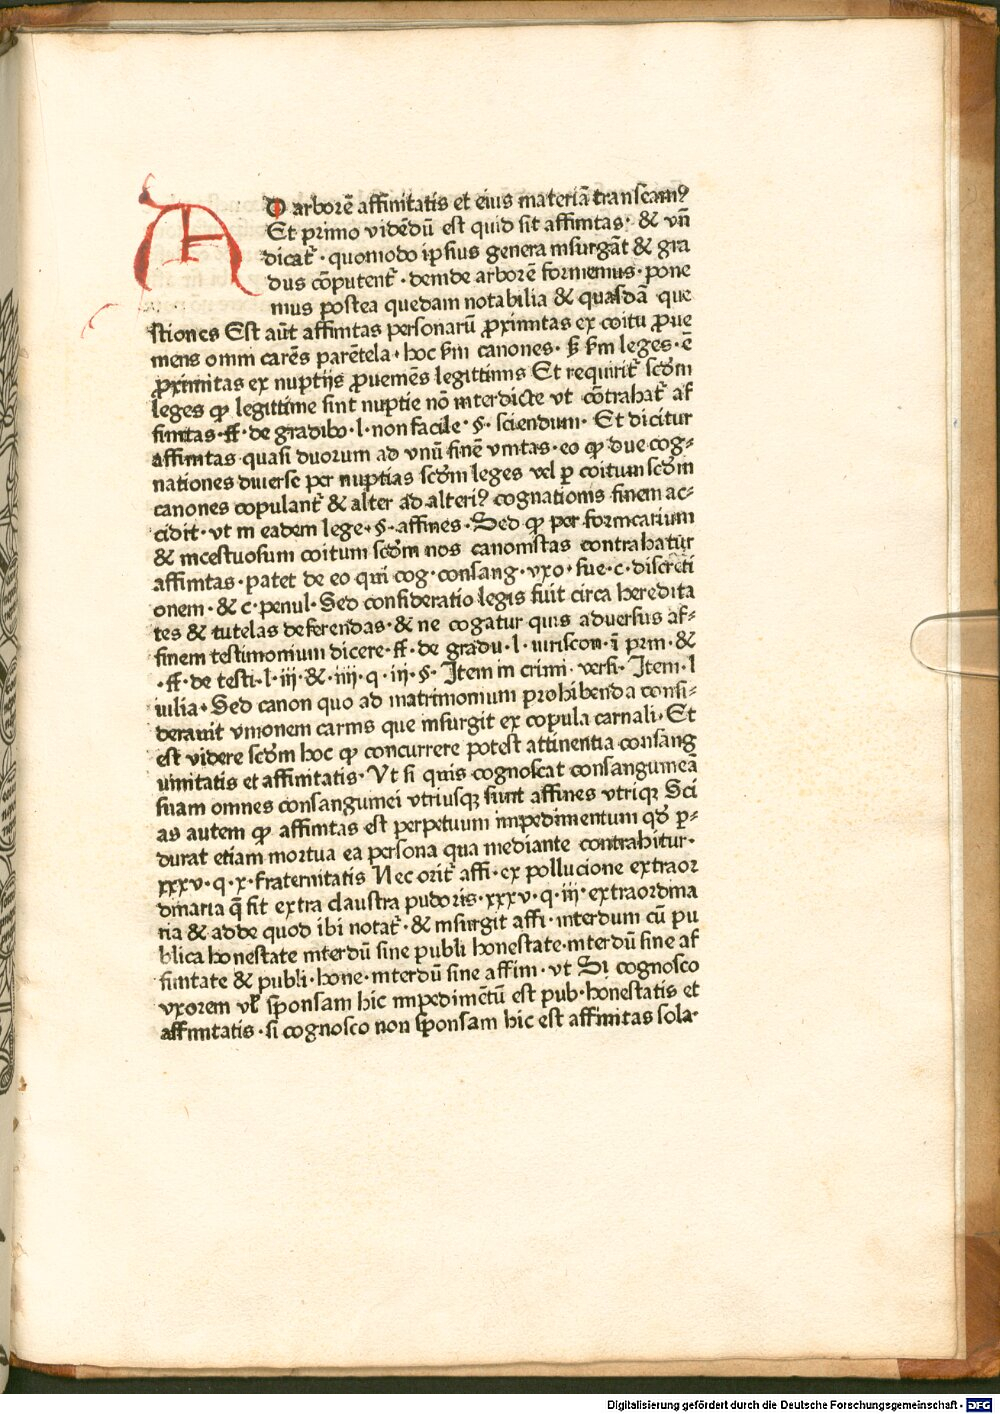 AD arborē affinitatis et eius materiā transeamꝰ
Et primo vidēdū est quid sit affinitas· & vñ
dicat᷑· quomodo ipsius genera insurgāt & gra
dus cōputent᷑· deinde arborē formemus· pone
mus postea quedam notabilia & quasdā que
stiones Est aūt affinitas personarū ꝓximitas ex coitu ꝓue
niens omni carēs parētela· hoc ẜm canones· ẜꝫ ẜm leges· ē
ꝓximitas ex nuptijs ꝓueniēs legittimis Et requirit᷑ scđm
leges ꝙ legittime sint nuptie nō interdicte vt cōtrahat᷑ af
finitas·ff·de gradibo·l·non facile·§·sciendum· Et dicitur
affinitas quasi duorum ad vnū finē vnitas·eo ꝙ due cog⸗
nationes diuerse per nuptias scđm leges vel ꝑ coitum scđm
canones copulant᷑ & alter ad alteriꝰ cognationis finem ac⸗
cidit·vt in eadem lege·§·affines·Sed ꝙ per fornicarium
& incestuosum coitum scđm nos canonistas contrahatur
affinitas·patet de eo qui cog·consang·vxo·sue·c·discreti
onem·& c·penul·Sed consideratio legis fuit circa heredita
tes & tutelas deferendas·& ne cogatur quis aduersus af⸗
finem testimonium dicere·ff·de gradu·l·iuriscon·ī prin·&
·ff·de testi·l·iij·&·iiij·q·iij·§·Item in crimi·versi·Item·l
iulia·Sed canon quo ad matrimonium prohibenda consi⸗
derauit vnionem carnis que insurgit ex copula carnali·Et
est videre scđm hoc ꝙ concurrere potest attinentia consang
uinitatis et affinitatis·Vt si quis cognoscat consanguineā
suam omnes consanguinei vtriusqꝫ siunt affines vtriqꝫ Sci
as autem ꝙ affinitas est perpetuum impedimentum qđ ꝑ⸗
durat etiam mortua ea persona qua mediante contrahitur·
xxxv·q·x·fraternitatis Nec orit᷑ affi·ex pollucione extraor
dinaria q̄ fit extra claustra pudoris·xxxv·q·iij·extraordina
ria & adde quod ibi notat᷑·& insurgit affi·interdum cū pu
blica honestate interdū sine publi honestate·interdū sine af
finitate & publi·hone·interdū sine affini·vt Si cognosco
vxorem vł sponsam hic impedimētū est pub·honestatis et
affinitatis·si cognosco non sponsam hic est affinitas sola·
Digitalisierung gefördert durch die Deutsche Forschungsgemeinschaft - DFG